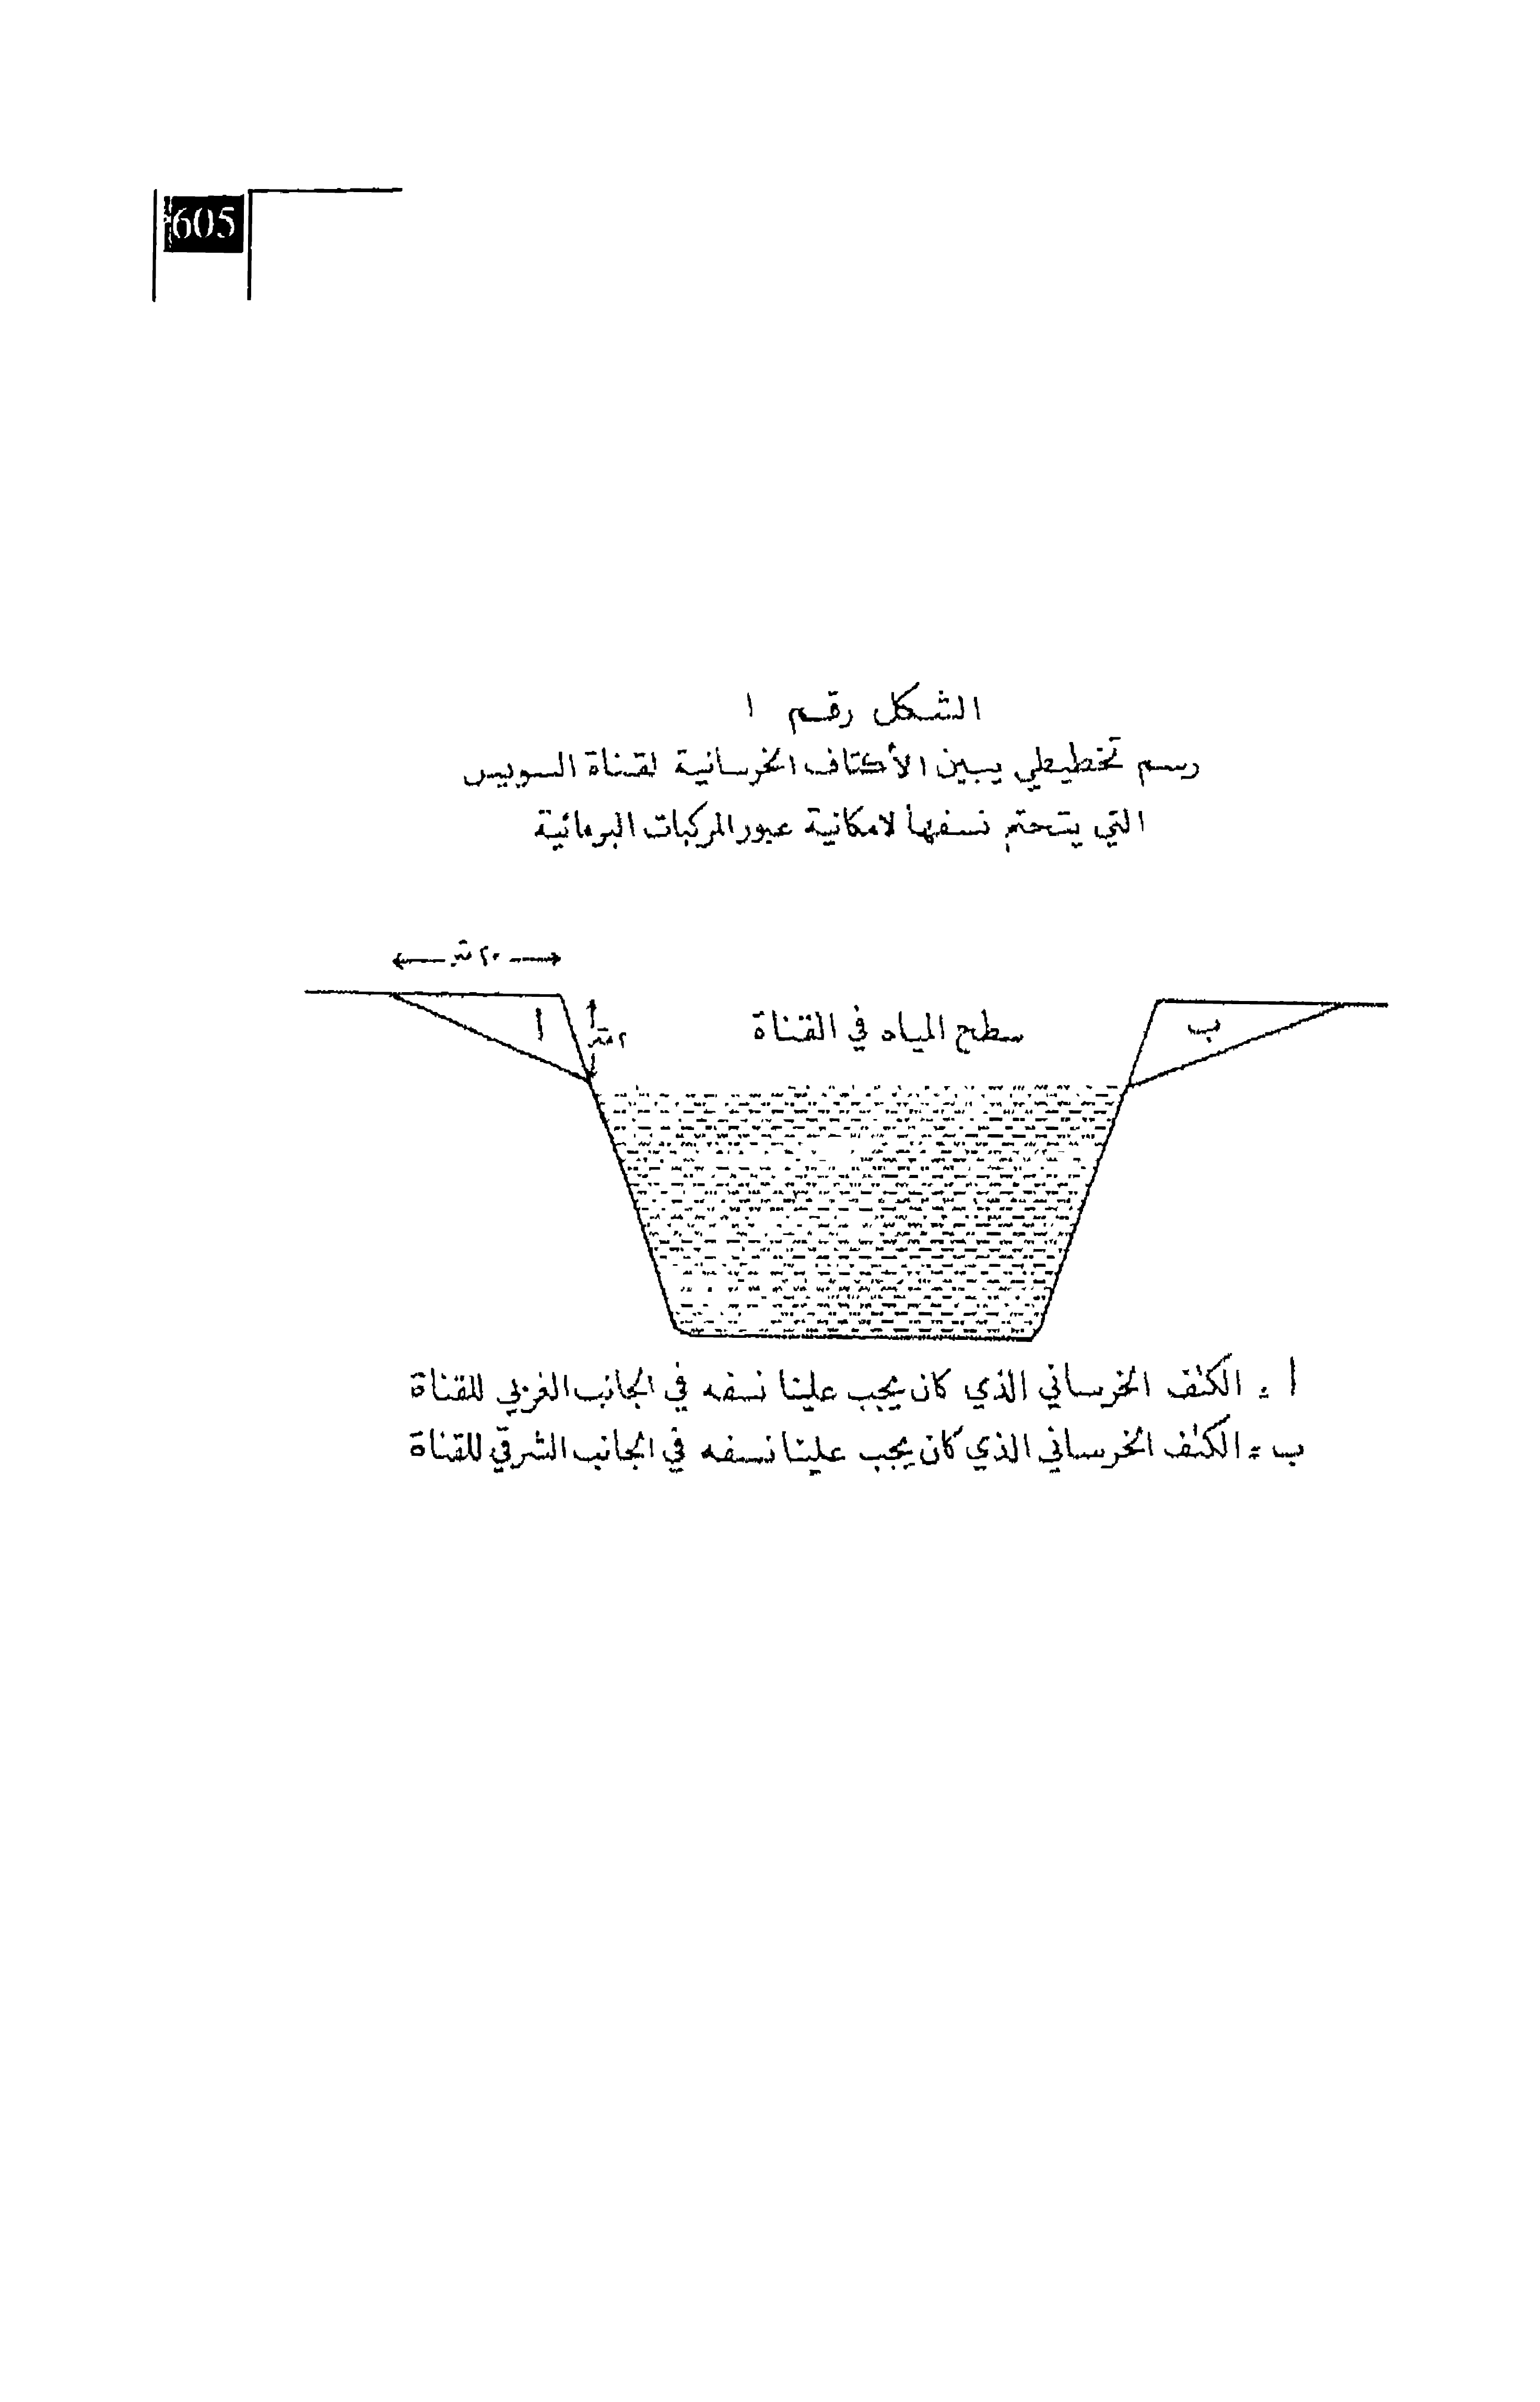 605
الشكل رقم ١
رسم تخطيطي يبين الأكتاف الخرسانية لقناة السويس
التي يتحتم نسفها لامكانية عبور المركبات البرمائية
٢٠ متر
أ
٢ متر
سطح المياه في القناة
ب
أ = الكتف الخرساني الذي كان يجب علينا نسفه في الجانب الغربي للقناة
ب = الكتف الخرساني الذي كان يجب علينا نسفه في الجانب الشرقي للقناة